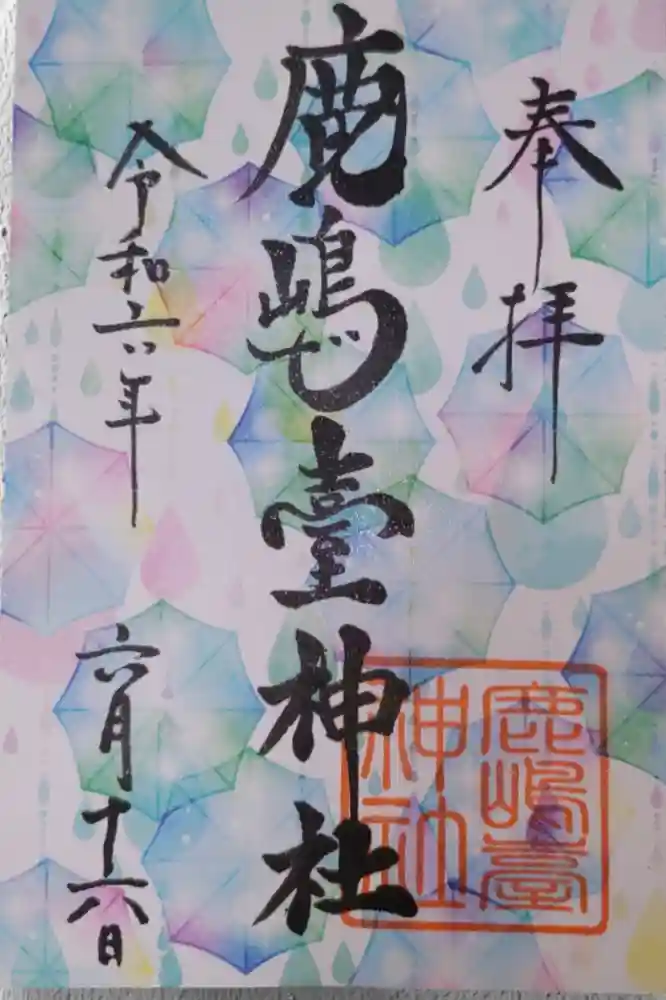 奉拝
鹿嶋臺神社
令和六年
六月十六日
鹿嶋臺
神社